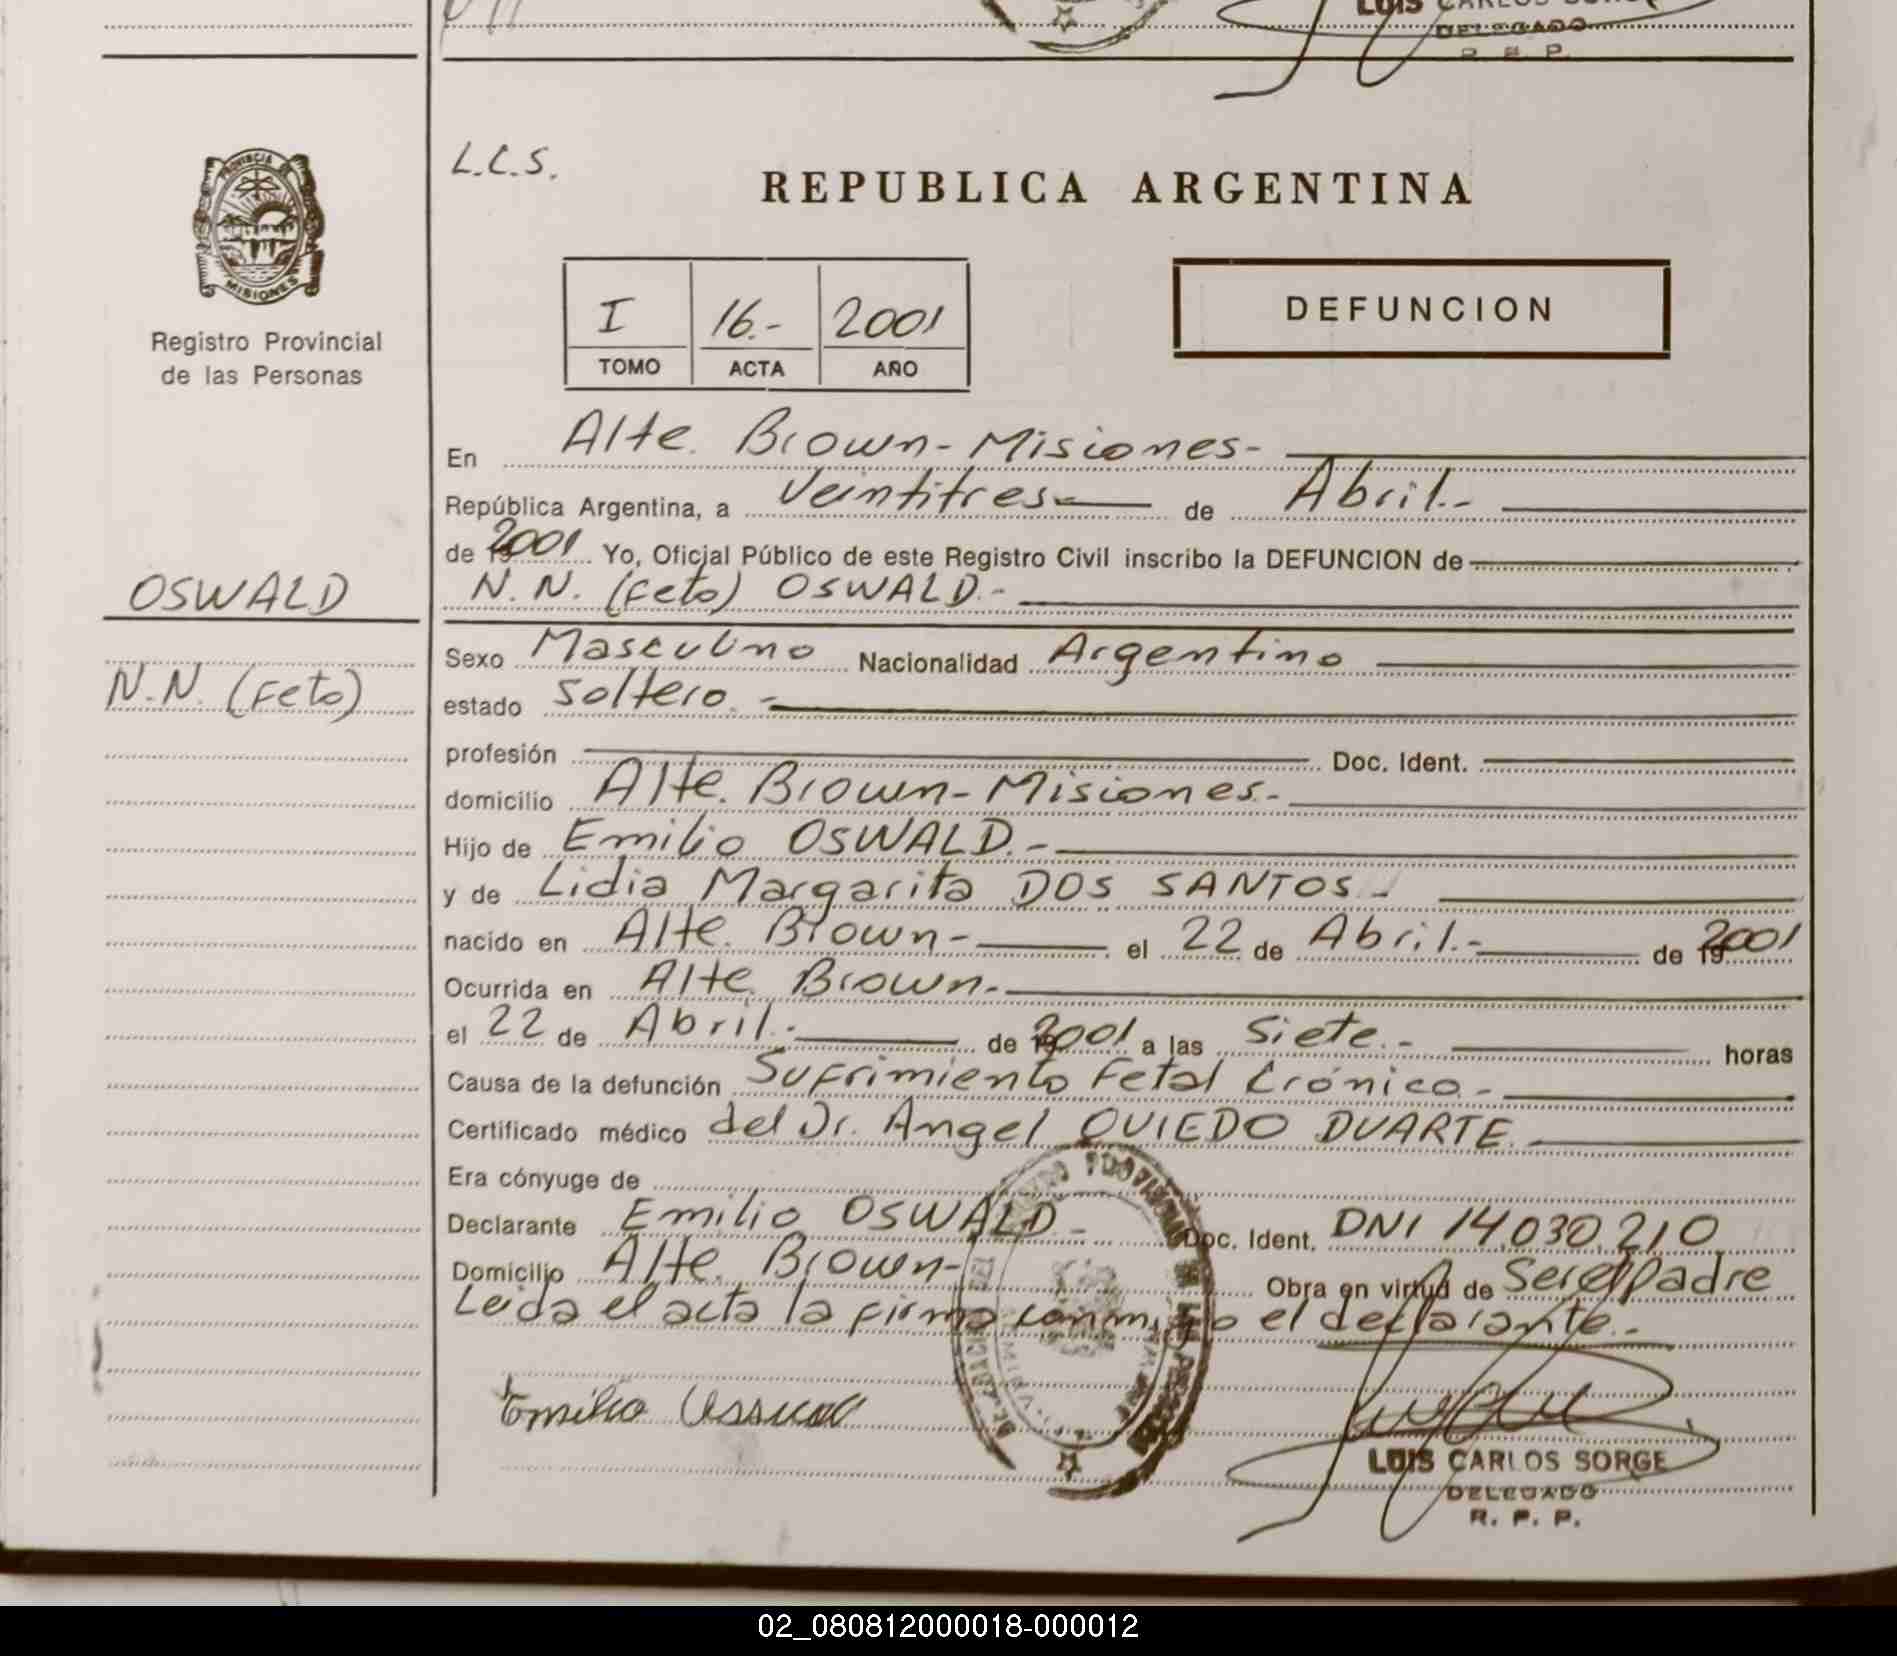 LUIS CARLOS SORGE
DELEGADO
R. P. P.
PROVINCIA DE
MISIONES
Registro Provincial
de las Personas
OSWALD
N.N. (Feto)
L.C.S.
REPUBLICA ARGENTINA
I 16.- 2001
TOMO ACTA AÑO
DEFUNCION
En Alte. Brown-Misiones-
República Argentina, a Veintitres- de Abril.-
de 2001 Yo, Oficial Público de este Registro Civil inscribo la DEFUNCION de
N.N. (Feto) OSWALD.-
Sexo Masculino Nacionalidad Argentino
estado soltero.-
profesión Doc. Ident.
domicilio Alte. Brown-Misiones.-
Hijo de Emilio OSWALD.-
y de Lidia Margarita DOS SANTOS.-
nacido en Alte. Brown- el 22 de Abril.- de 2001
Ocurrida en Alte. Brown.-
el 22 de Abril.- de 2001 a las Siete.- horas
Causa de la defunción Sufrimiento Fetal Crónico.-
Certificado médico del Dr. Angel OVIEDO DUARTE.
Era cónyuge de
Declarante Emilio OSWALD.- Doc. Ident. DNI 14.030.210
Domicilio Alte. Brown- Obra en virtud de Ser el Padre
Leida el acta la firma conmigo el declarante.-
Emilio
LUIS CARLOS SORGE
DELEGADO
R. P. P.
02_080812000018-000012